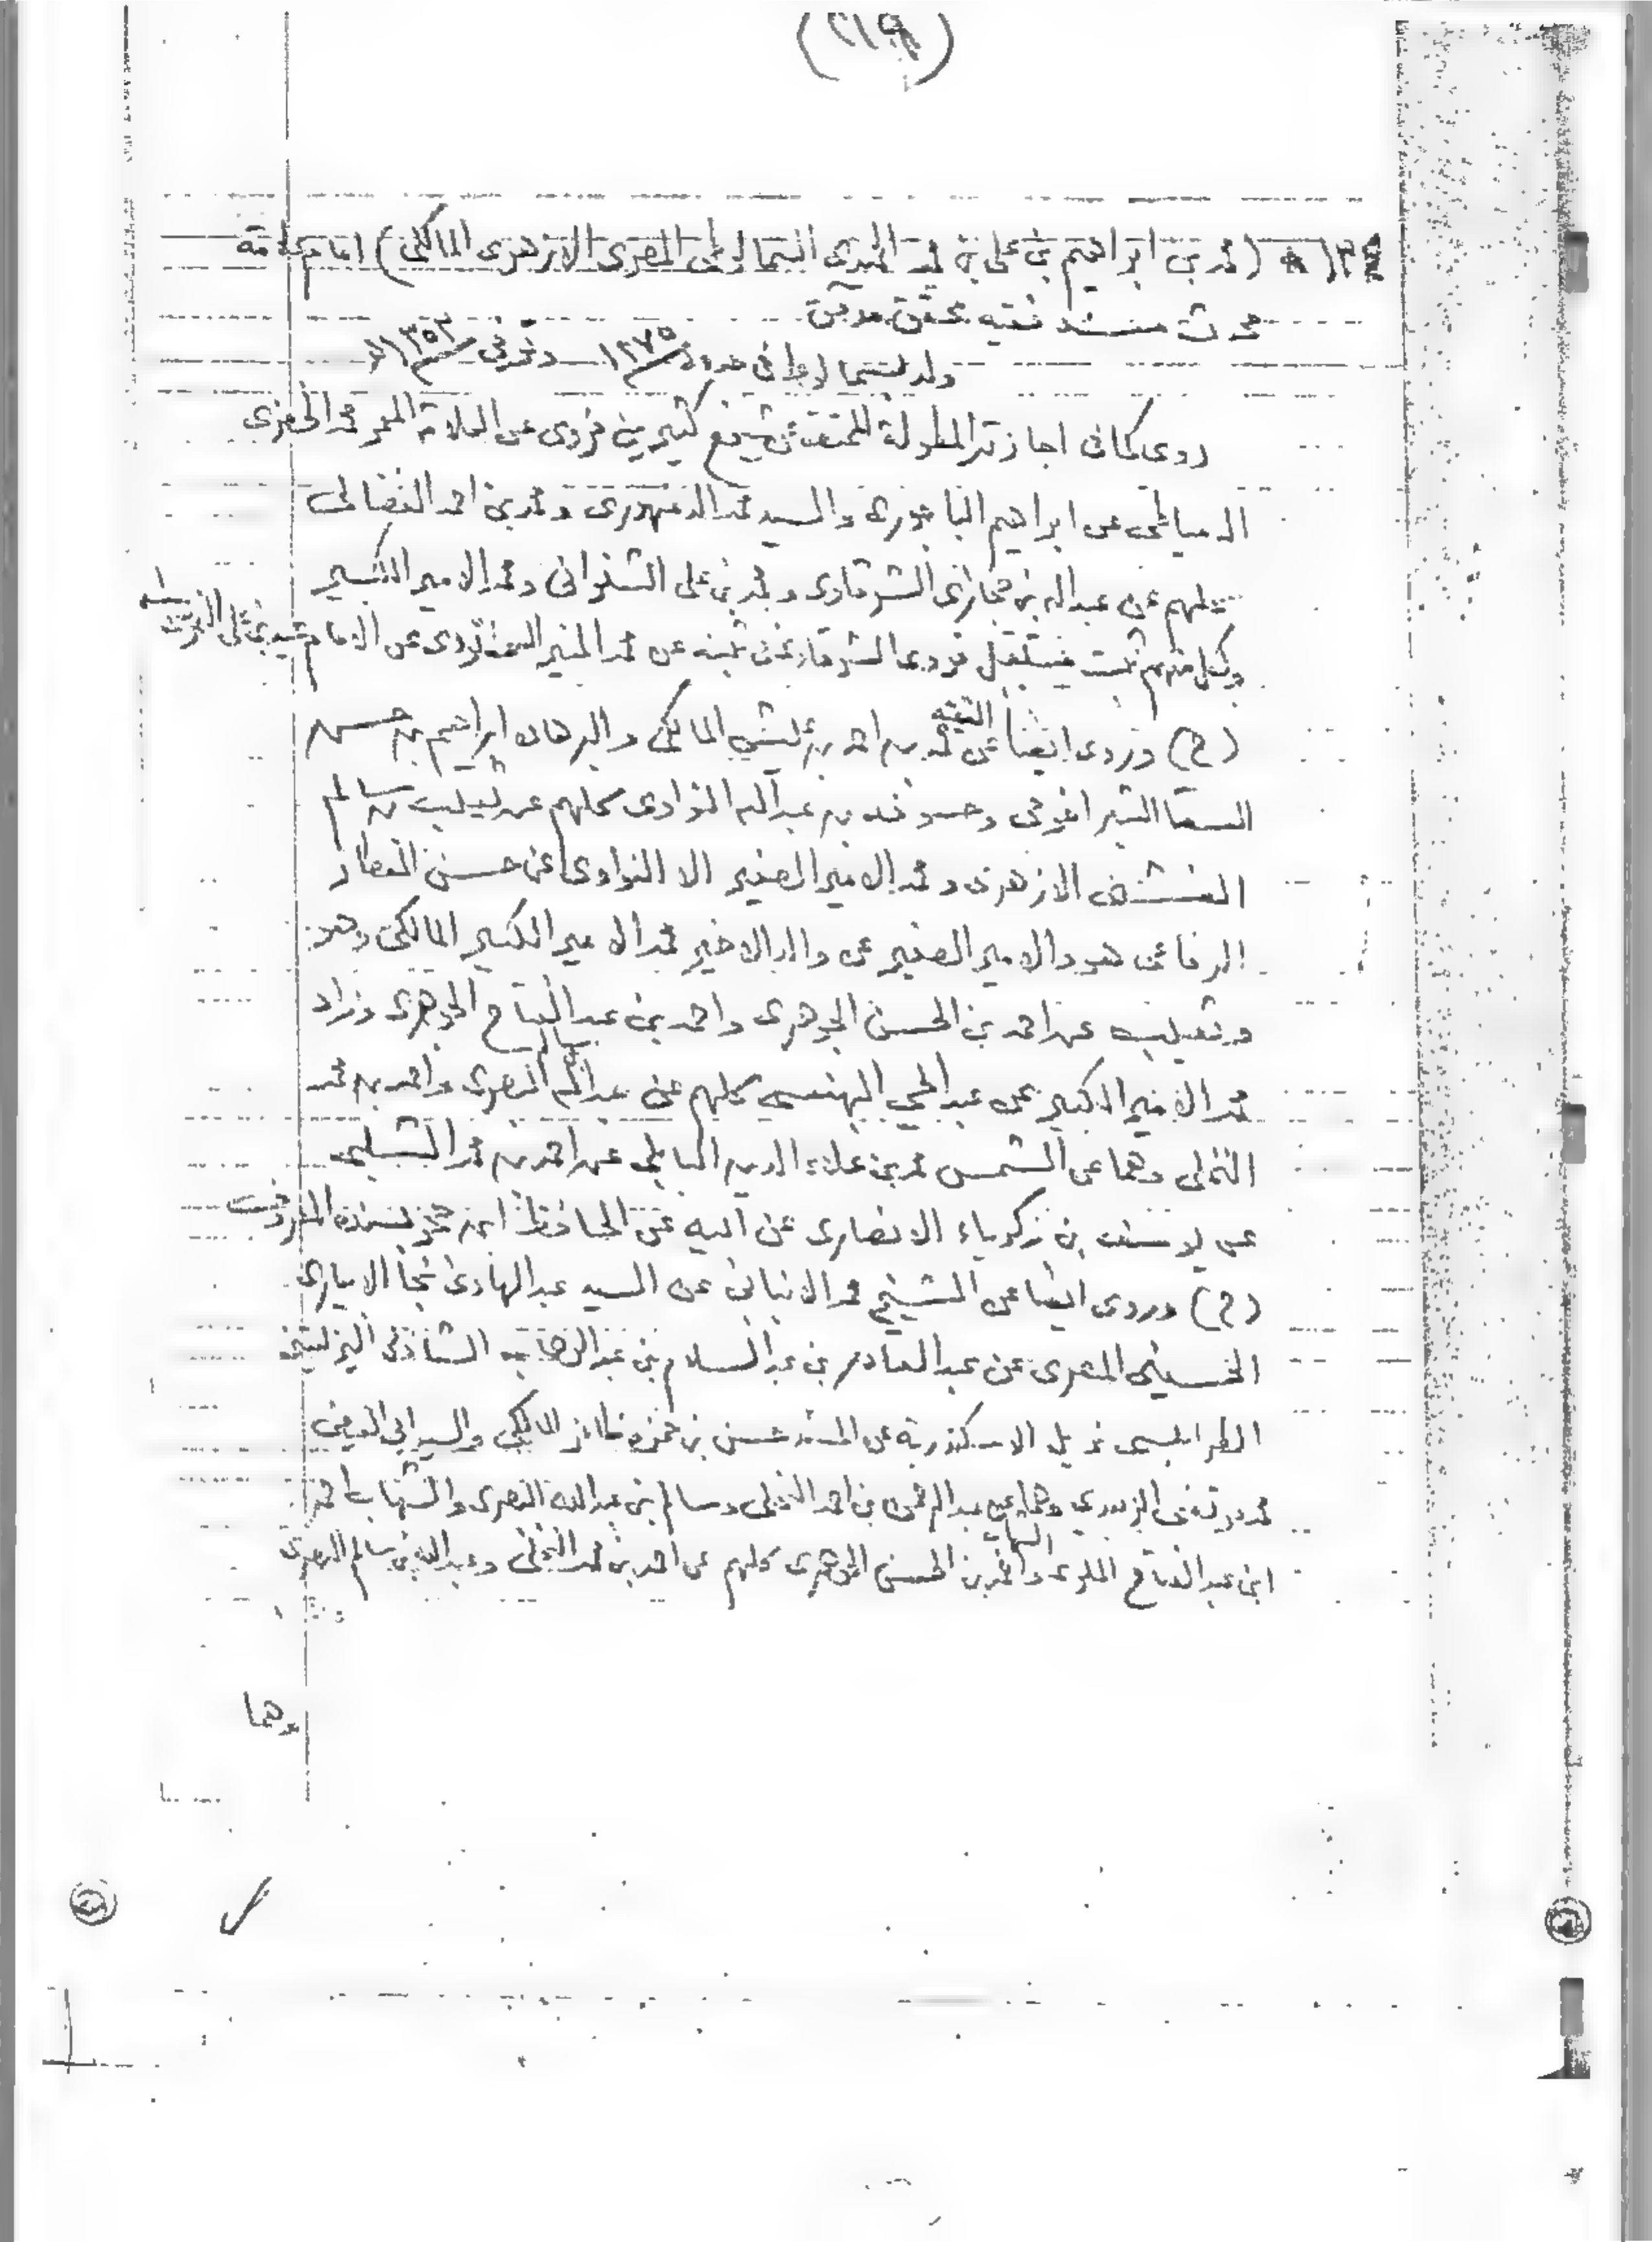 (٢١٩)
(محمد بن ابراهيم بن على بن محمد الحميدى السمالوطى المصرى الازهرى المالكى) امام علامة
محدث مسند فقيه محقق مدقق
ولد بسمالوط فى حدود ١٢٧٥ وتوفى ١٣٥٣
روى كما فى اجازته المطولة عن كثيرين فروى عن العلامة المعمر محمد الخضرى
الدمياطى عن ابراهيم الباجورى والسيد محمد الدمنهورى ومحمد بن احمد الفضالى
كلهم عن عبدالله بن حجازى الشرقاوى ومحمد بن على الشنوانى ومحمد الامير الكبير
ولكل منهم ثبت مستقل فروى الشرقاوى فى ثبته عن محمد المنير عن الامام عيد بن على النمرسى
(ح) وروى ايضا عن الفقيه محمد بن احمد عليش المالكى والبرهان ابراهيم بن حسن
السقا الشبراخومى وحسونه بن عبدالله النواوى كلهم عن ثعيلب بن سالم
الفشنى الازهرى ومحمد الامير الصغير الا النواوى عن حسن العطار
الرفاعى هو والامير الصغير عن والد الاخير محمد الامير الكبير المالكى وهو
وثعيلب عن احمد بن الحسن الجوهرى واحمد بن عبدالفتاح الجوهرى وزاد
محمد الامير الكبير عن عبدالحى البهنسى كلهم عن عبدالله البصرى واحمد بن محمد
النخلى وهما عن الشمس محمد بن علاء الدين البابلى عن احمد بن محمد الشلبى
عن يوسف بن زكرياء الانصارى عن ابيه عن الحافظ ابن حجر بسنده المعروف
(ح) وروى ايضا عن الشيخ محمد الانبابى عن السيد عبدالهادى نجا الابيارى
الحسينى المصرى عن عبدالقادر بن عبدالسلام بن عبدالوهاب الشاذلى اليزليتنى
الطرابلسى نزيل الاسكندرية عن المسند حسن بن حمزه المالكى والسيد ابى الفيض
محمد مرتضى الزبيدى وهما عن عبدالرحمن بن احمد النخلى وسالم بن عبدالله البصرى والشهاب احمد
ابن عبدالفتاح الملوى والشهاب احمد بن الحسن الجوهرى كلهم عن احمد بن محمد النخلى وعبدالله بن سالم البصرى
وهما